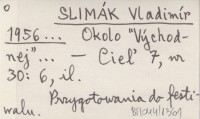 o
SLIMÁK Vladimír
1956... Okolo "Východ-
nej"... — Cieľ 7, nr
30: 6, il.
Przygotowania do festi-
walu.